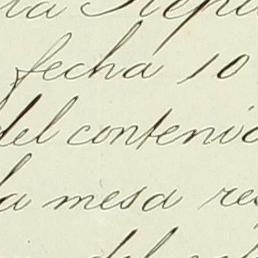 la Repu
fecha 10
del contenid
la mesa res
del